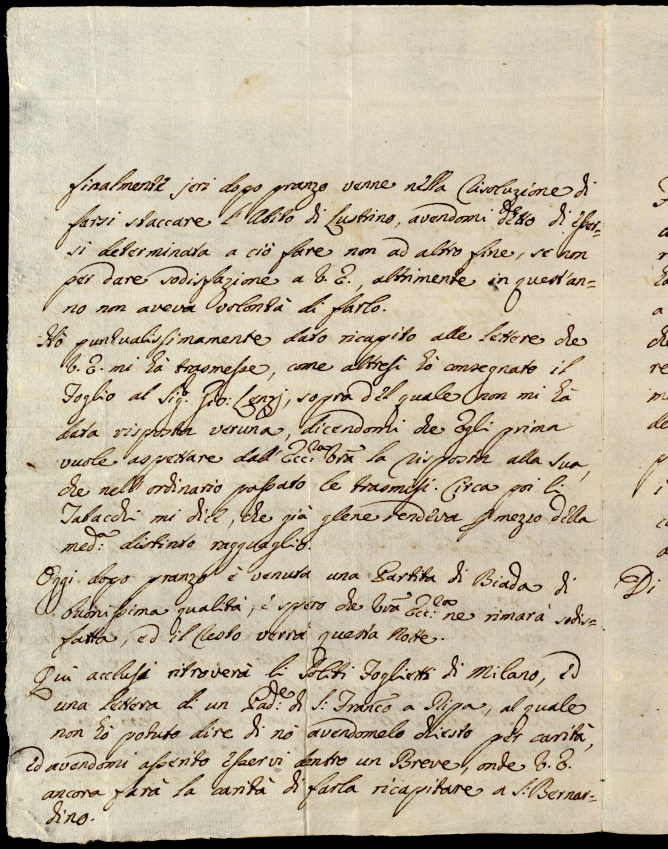 finalmente jeri dopo pranzo venne nella Risoluzione di
farsi staccare l'Abito di Lustrino, avendomi detto di esser-
si determinata a ciò fare non ad altro fine, se non
per dare sodisfazione a V. E., altrimente in quest'an=
no non aveva volontà di farlo.
Hò puntualissimamente dato ricapito alle lettere che
V. E. mi hà trasmesse, come altresi hò consegnato il
Foglio al Sig.r Gio: Lenzj, sopra del quale non mi hà
data risposta veruna, dicendomi che Egli prima
vuole aspettare dall'Ecc:za Vra la risposta alla sua,
che nell'ordinario passato le trasmesi. Circa poi li
Tabacchi mi dice, che già gliene rendeva p mezzo della
med:a distinto ragguaglio.
Oggi dopo pranzo è venuta una Partita di Biada di
buonissima qualità, e spero che Vra Ecc:za ne rimarà sodis=
fatta, ed il Resto verrà questa Notte.
Quì acclusi ritroverà li soliti Foglietti di Milano, ed
una lettera di un Pad:e di S: Franco a Ripa, al quale
non hò potuto dire di nò avendomelo chiesto per carità,
ed avendomi asserito esservi dentro un Breve, onde V. E.
ancora farà la carità di farla ricapitare a S: Bernar-
dino.
Di